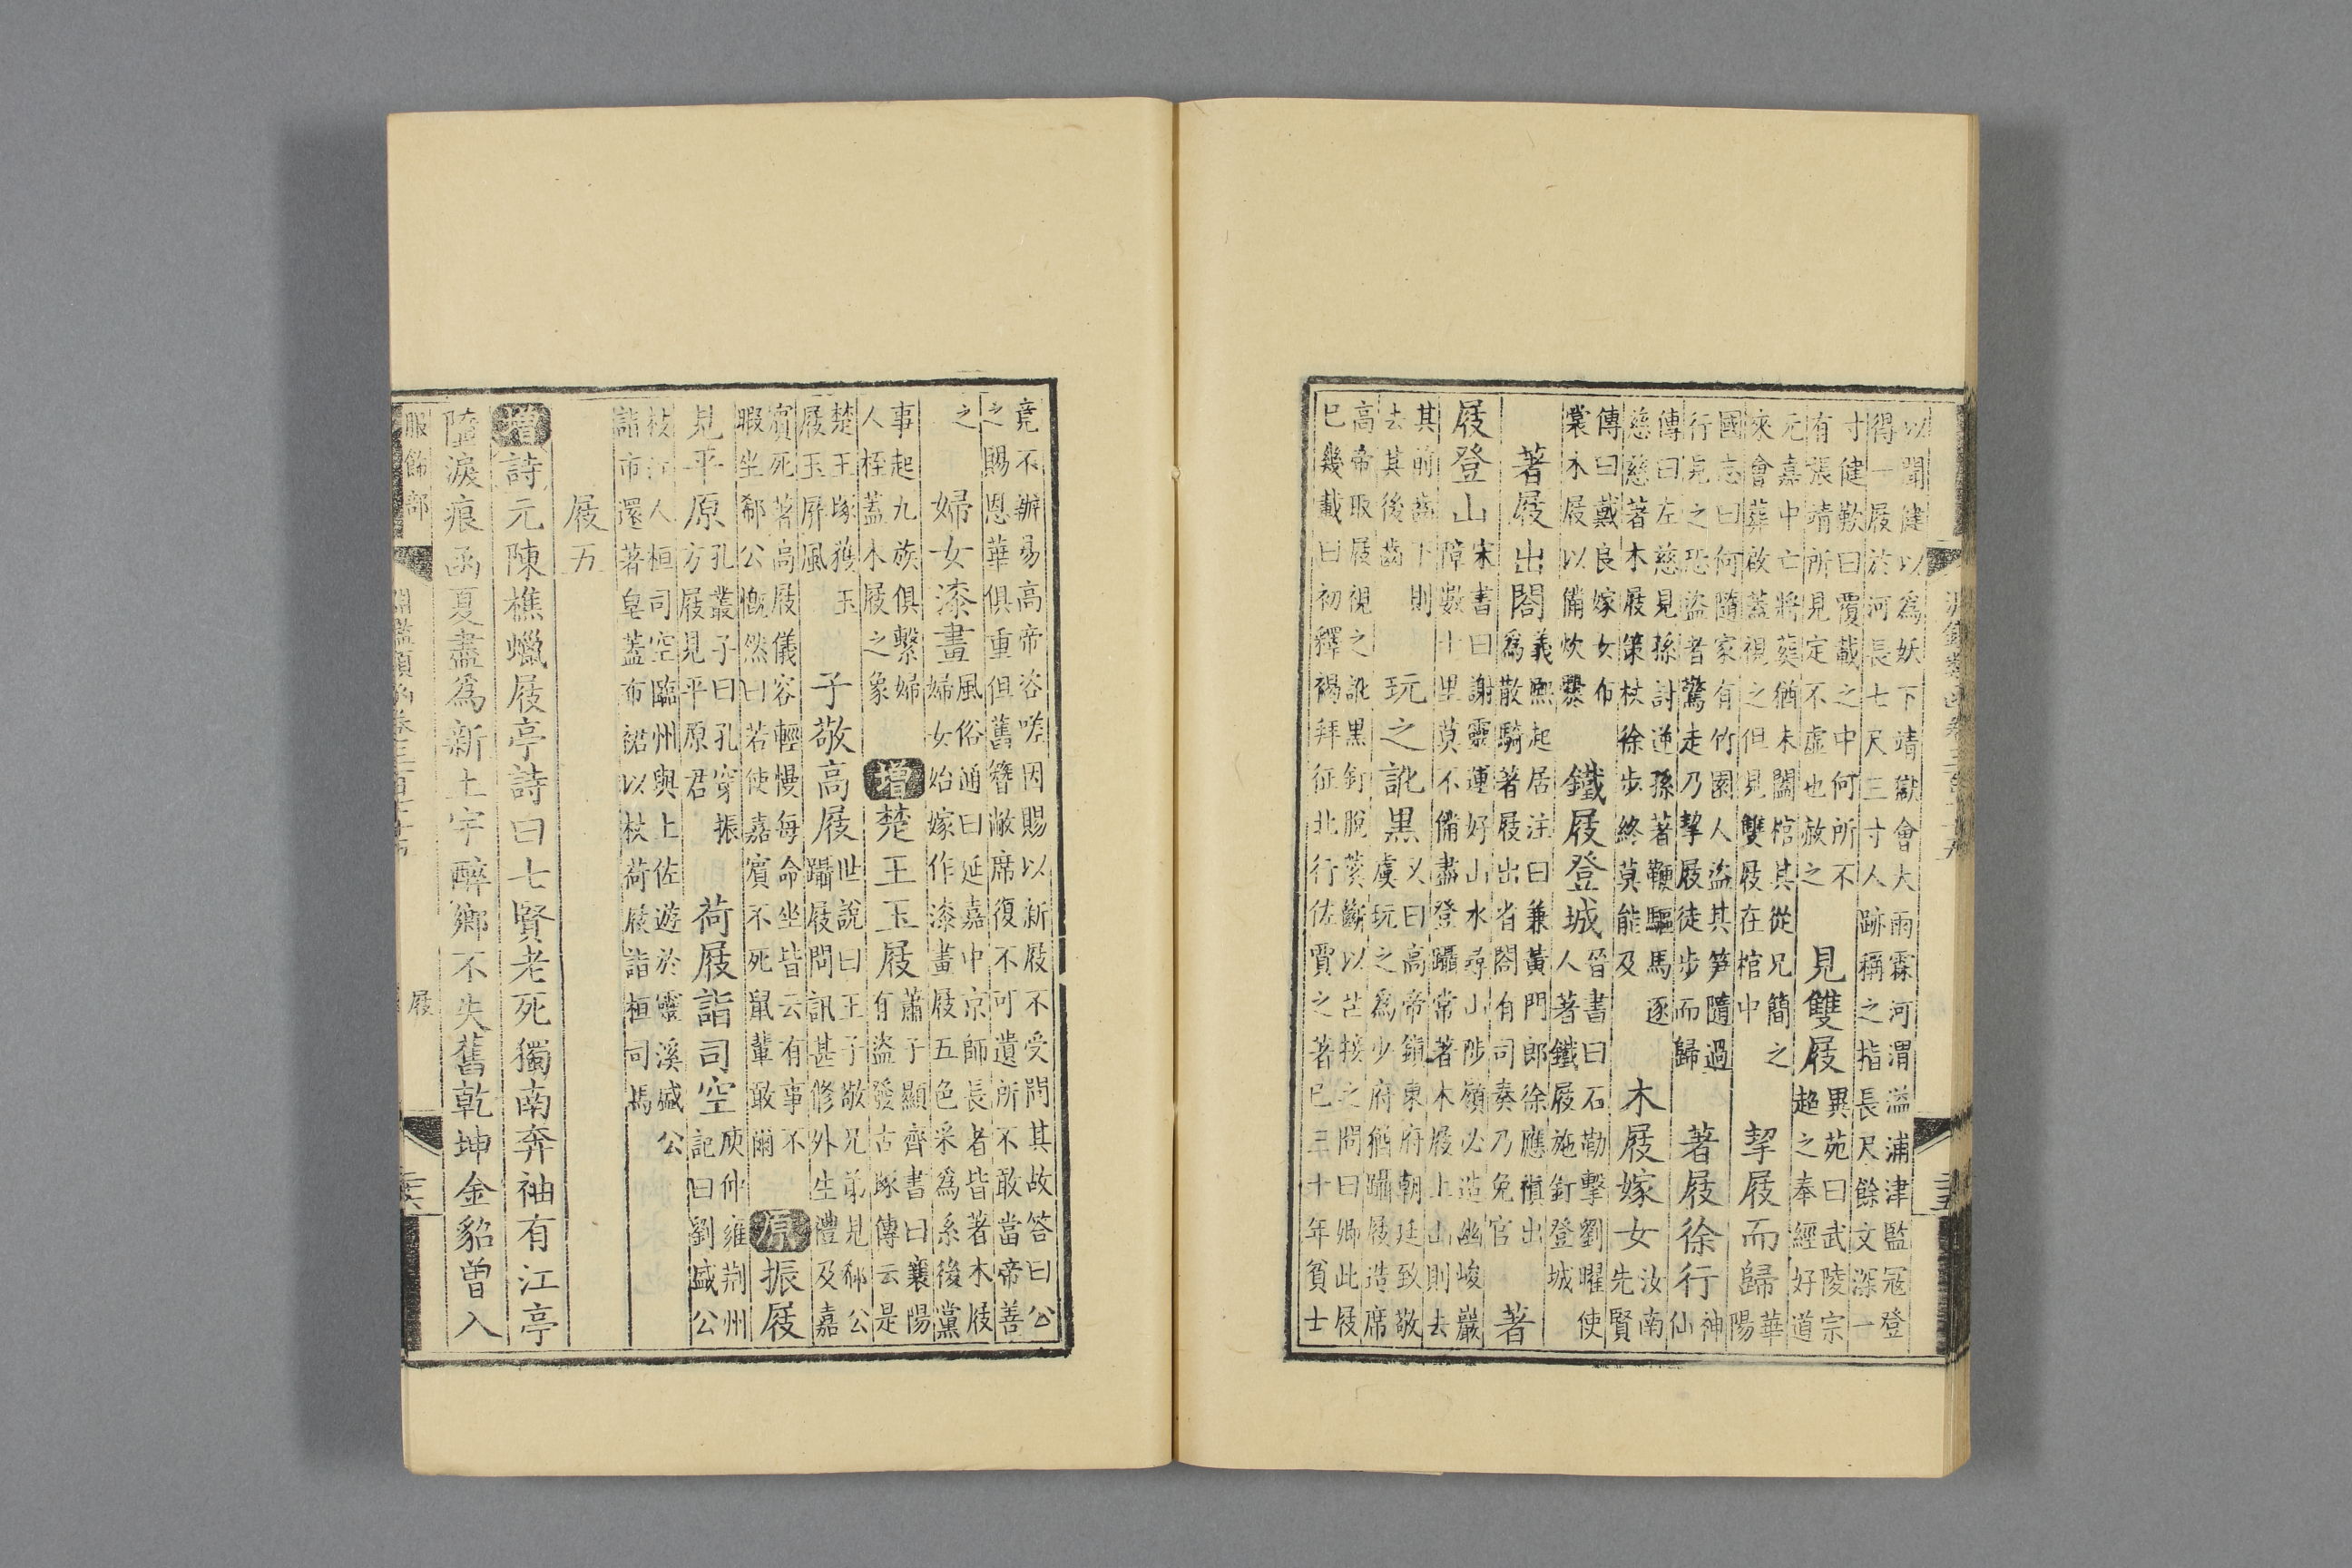 以聞健以為妖下靖獄會大雨霖河渭溢蒲津監冦登
得一屐於河長七尺三寸人跡稱之指長尺餘文深一
寸健歎曰覆載之中何所不
有張靖所見定不虛也赦之
見雙屐
異苑曰武陵宗
超之奉經好道
元嘉中亡將葬猶未闔棺其從兄簡之
來會葬啟蓋視之但見雙屐在棺中
挈屐而歸
華
陽
國志曰何隨家有竹園人盜其笋隨過
行見之恐盜者驚走乃挈屐徒步而歸
著屐徐行
神
仙
傳曰左慈見孫討逆孫著鞭驅馬逐
慈慈著木屐策杖徐步終莫能及
木屐嫁女
汝南
先賢
傳曰戴良嫁女布
裳木屐以備炊爨
鐵屐登城
晉書曰石勒擊劉曜使
人著鐵屐施釘登城
著
著屐出閤
義熙起居注曰兼黃門郎徐應禎出
為散騎著屐出省閤有司奏乃免官
屐登山
宋書曰謝靈運好山水尋山陟嶺必造幽峻巖
障數十里莫不備盡登躡常著木屐上山則去
其前齒下則
去其後齒
玩之訛黑
又曰高帝鎮東府朝廷致敬
虞玩之為少府猶躡屐造席
高帝取屐視之訛黑釘脫蒵斷以芒接之問曰卿此屐
已幾載曰初釋褐拜征北行佐買之著已三十年貧士
竟不辦易高帝咨嗟因賜以新屐不受問其故答曰公
之賜恩華俱重但舊簪敝席復不可遺所不敢當帝善
之
婦女漆畫
風俗通曰延嘉中京師長者皆著木屐
婦女始嫁作漆畫屐五色采為系後黨
事起九族俱繫婦
人桎蓋木屐之象
增
楚王玉屐
蕭子顯齊書曰襄陽
有盜發古塚傳云是
楚王塚獲玉
屐玉屏風
子敬高屐
世說曰王子敬兄弟見郗公
躡屐問訊甚修外生禮及嘉
賓死著高屐儀容輕慢每命坐皆云有事不
暇坐郗公慨然曰若使嘉賓不死鼠輩敢爾
原
振屐
見平原
孔叢子曰孔穿振
方屐見平原君
荷屐詣司空
庾仲雍荊州
記曰劉盛公
枝江人桓司空臨州與上佐遊於靈溪盛公
詣市還著皁蓋布裙以杖荷屐詣桓司馬
屐五
增
詩元陳樵蠟屐亭詩曰七賢老死獨南奔袖有江亭
墮淚痕函夏盡為新土宇醉鄉不失舊乾坤金貂曾入
服飾部
淵鑑類函卷三百七十五
屐